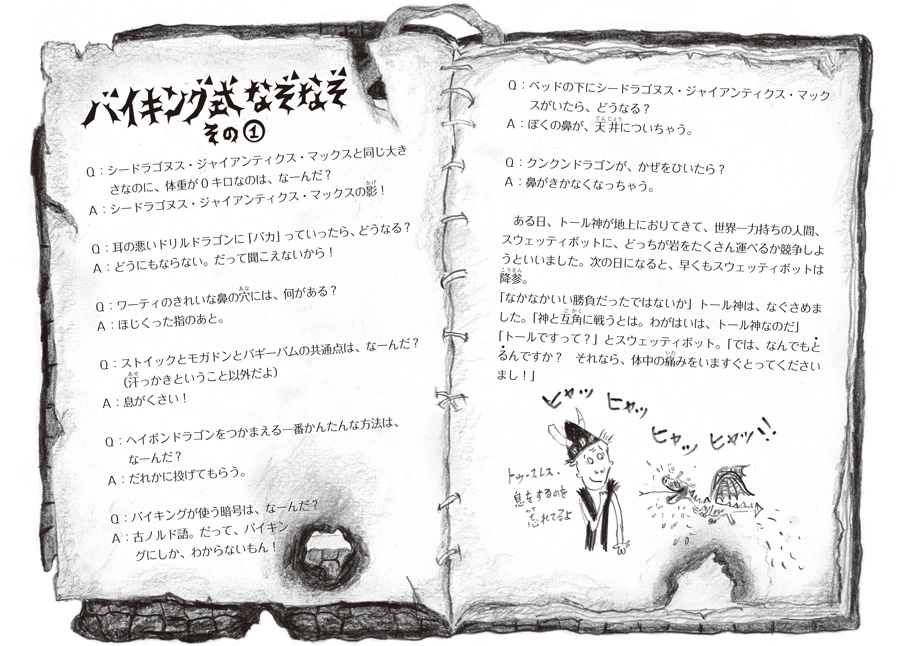 バイキング式 なぞなぞ
その①
Q：シードラゴヌス・ジャイアンティクス・マックスと同じ大き
さなのに、体重が0キロなのは、なーんだ？
A：シードラゴヌス・ジャイアンティクス・マックスの影！
Q：耳の悪いドリルドラゴンに「バカ」っていったら、どうなる？
A：どうにもならない。だって聞こえないから！
Q：ワーティのきれいな鼻の穴には、何がある？
A：ほじくった指のあと。
Q：ストイックとモガドンとバギーバムの共通点は、なーんだ？
（汗っかきということ以外だよ）
A：息がくさい！
Q：ヘイボンドラゴンをつかまえる一番かんたんな方法は、
なーんだ？
A：だれかに投げてもらう。
Q：バイキングが使う暗号は、なーんだ？
A：古ノルド語。だって、バイキン
グにしか、わからないもん！
Q：ベッドの下にシードラゴヌス・ジャイアンティクス・マック
スがいたら、どうなる？
A：ぼくの鼻が、天井についちゃう。
Q：クンクンドラゴンが、かぜをひいたら？
A：鼻がきかなくなっちゃう。
ある日、トール神が地上におりてきて、世界一力持ちの人間、
スウェッティボットに、どっちが岩をたくさん運べるか競争しよ
うといいました。次の日になると、早くもスウェッティボットは
降参。
「なかなかいい勝負だったではないか」トール神は、なぐさめま
した。「神と互角に戦うとは。わがはいは、トール神なのだ」
「トールですって？」とスウェッティボット。「では、なんでもと
るんですか？　それなら、体中の痛みをいますぐとってください
まし！」
ヒャッ ヒャッ
ヒャッ ヒャッ!!
トゥースレス、
息をするのを
忘れてるよ